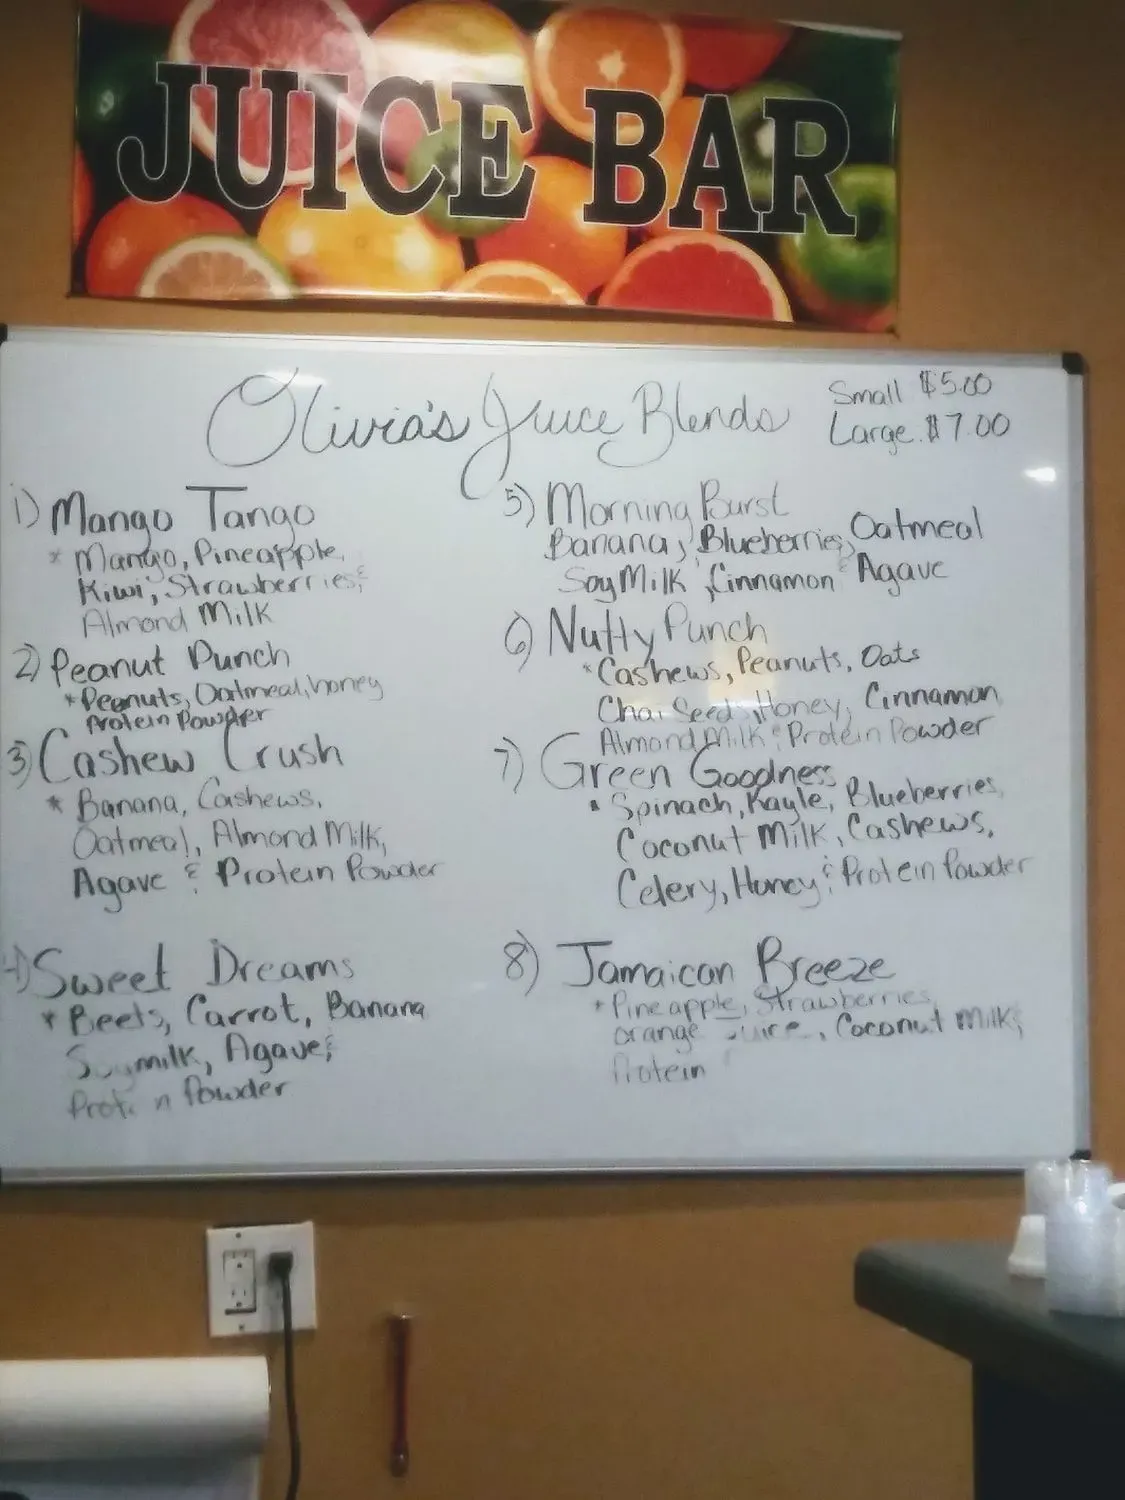 JUICE BAR
Olivia's Juice Blends
Small $5.00
Large $7.00
1) Mango Tango
* Mango, Pineapple,
Kiwi, Strawberries, &
Almond Milk
2) Peanut Punch
* Peanuts, Oatmeal, honey
Protein Powder
3) Cashew Crush
* Banana, Cashews,
Oatmeal, Almond Milk,
Agave & Protein Powder
4) Sweet Dreams
* Beets, Carrot, Banana
Soymilk, Agave &
Protein Powder
5) Morning Burst
Banana, Blueberries, Oatmeal
Soy Milk, Cinnamon & Agave
6) Nutty Punch
* Cashews, Peanuts, Oats
Chai Seeds, Honey, Cinnamon
Almond Milk & Protein Powder
7) Green Goodness
* Spinach, Kayle, Blueberries,
Coconut Milk, Cashews,
Celery, Honey & Protein Powder
8) Jamaican Breeze
* Pineapple, Strawberries,
orange Juice, Coconut Milk, &
Protein